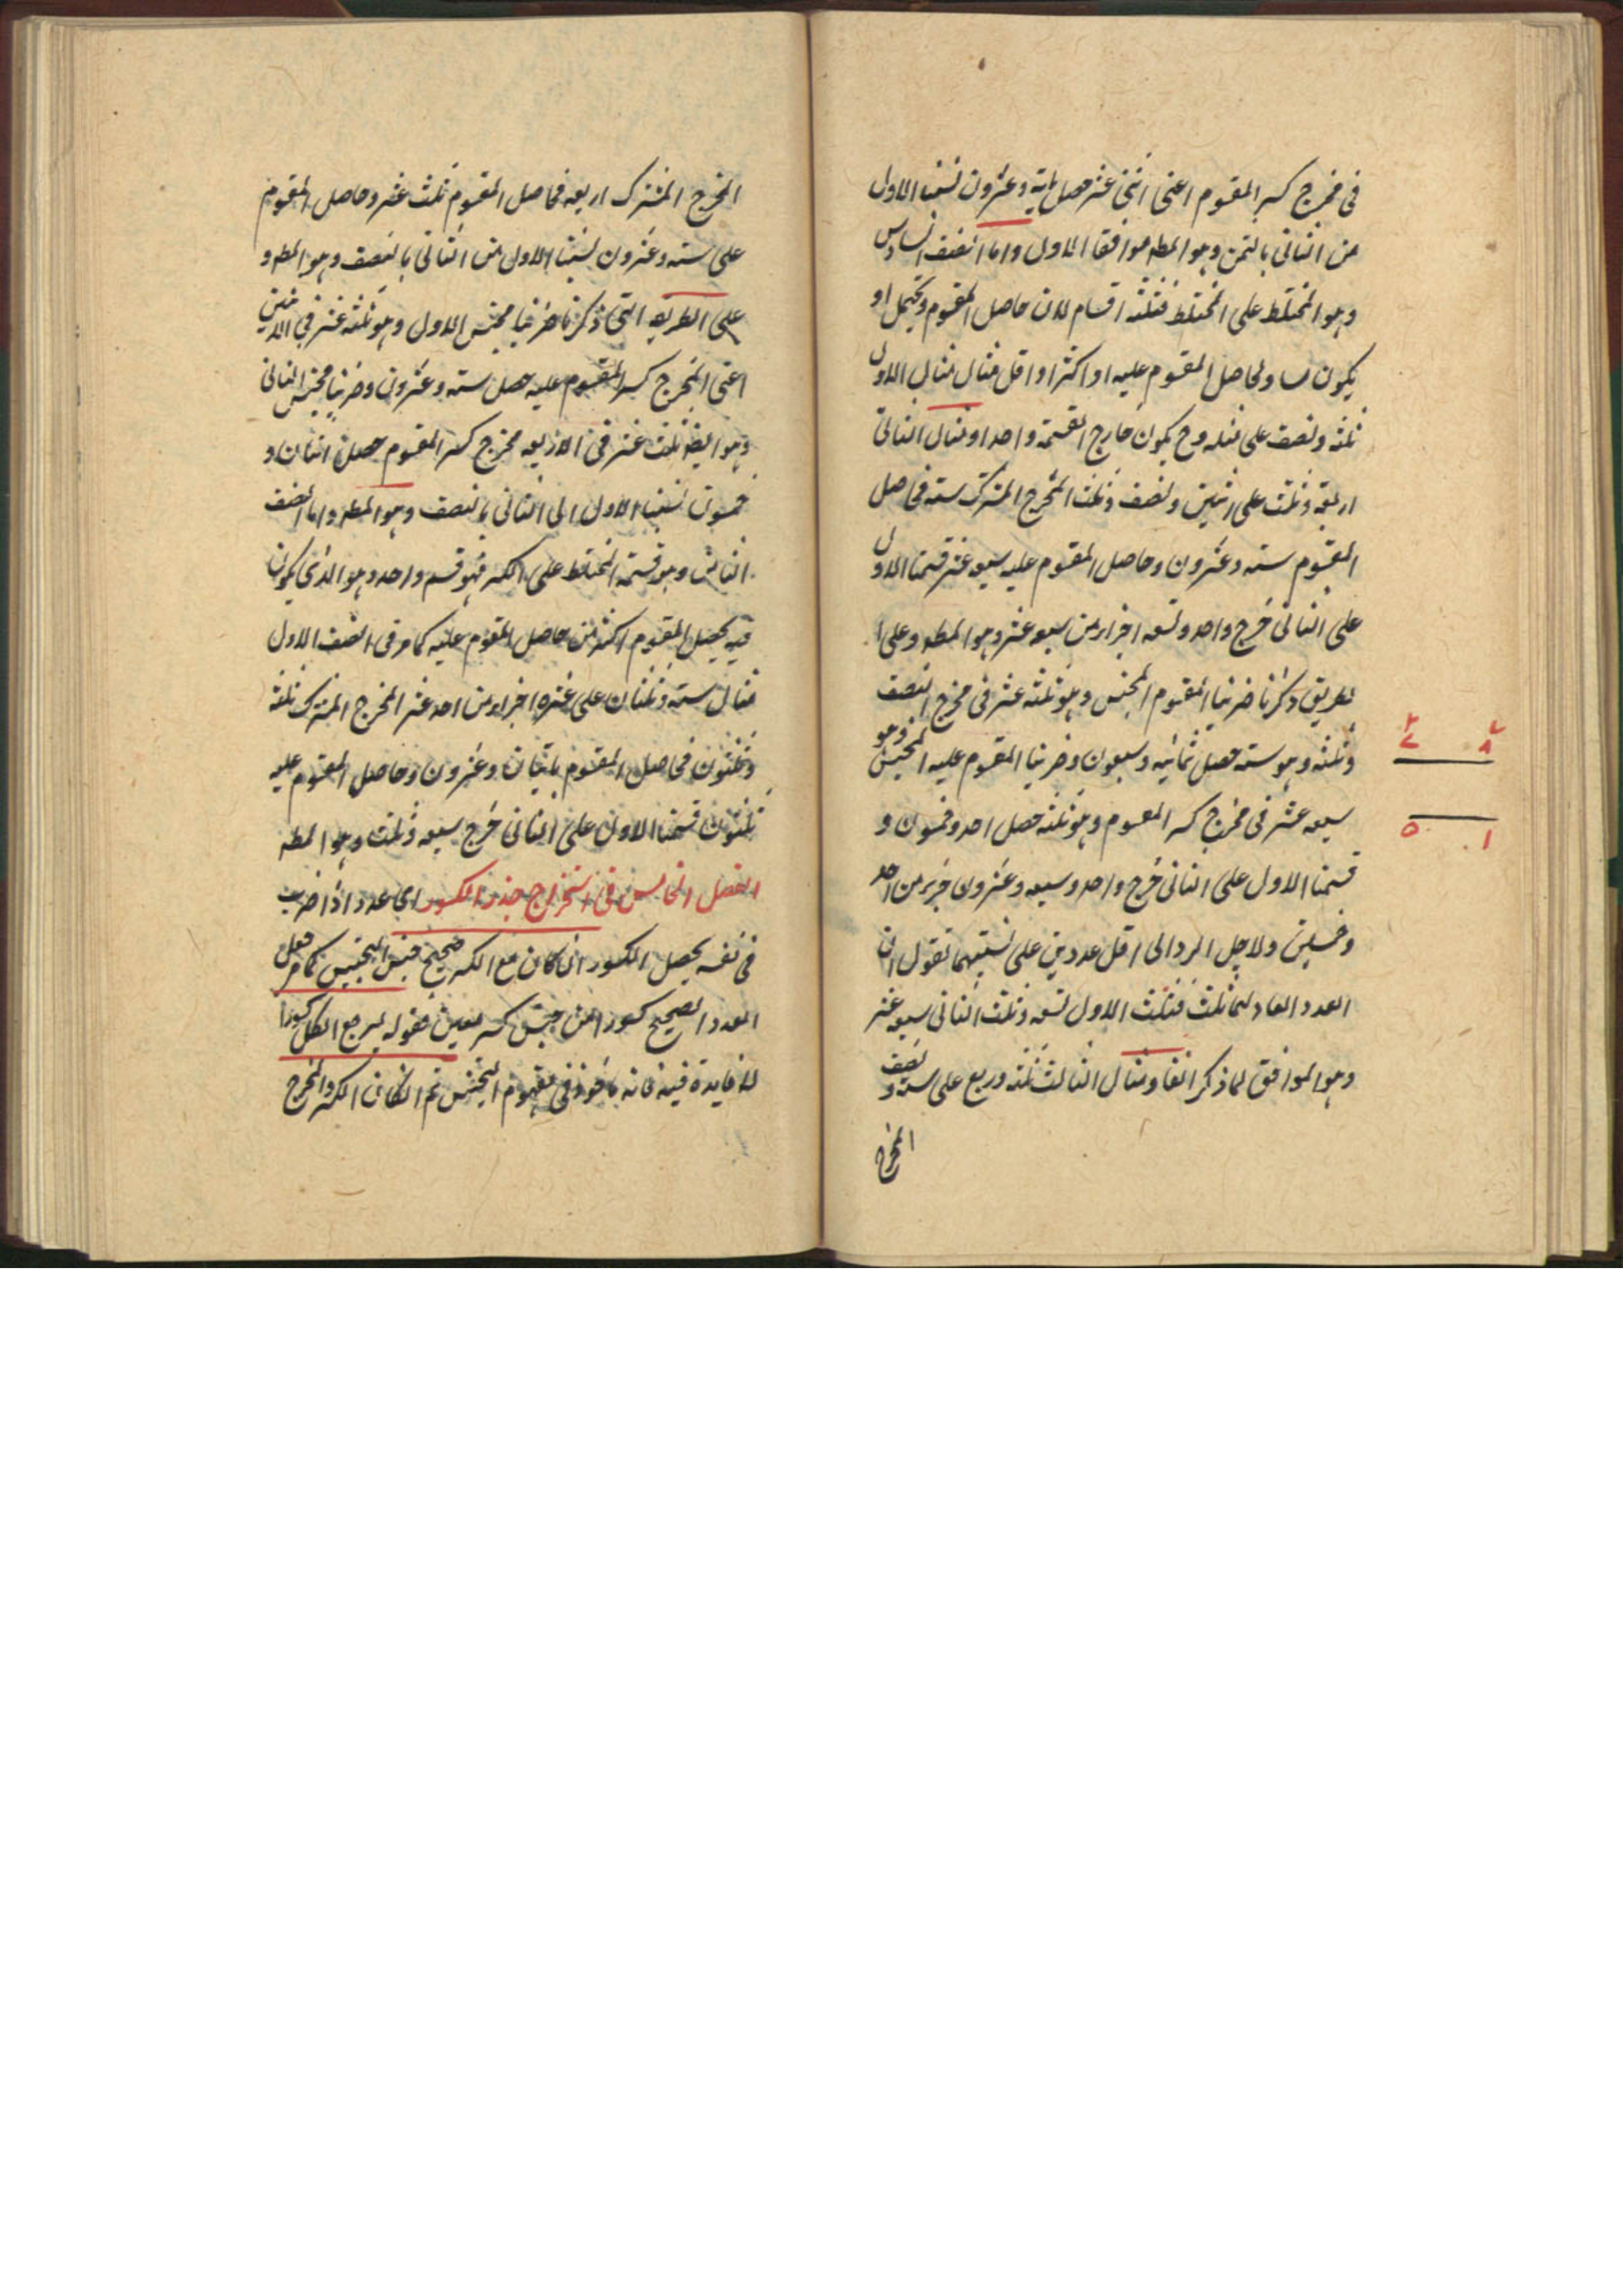 فى مخرج كسر المقسوم اعنى اثنى عشر حصل ماية وعشرون نسبنا الاول
من الثانى بالثمن وهو المطه موافقا للاول واما الصنف السادس
وهو المختلط على المختلط فثلثه اقسام لان حاصل المقسوم يحتمل ان
يكون مساو لحاصل المقسوم عليه او اكثر او اقل مثال مثال الاول
ثلثه ونصف على مثله وح يكون خارج القسمة واحدا ومثال الثانى
اربعة وثلث على اثنين ونصف وثلث المخرج المشترك سته فحاصل
المقسوم سته وعشرون وحاصل المقسوم عليه سبعه عشر قسمنا الاول
على الثانى خرج واحد وتسعه اجزاء من سبعه عشر وهو المطه وعلى
طريق ذكرنا ضربنا المقسوم المجنس وهو ثلثه عشر فى مخرج النصف
وثلثه وهو سته حصل ثمانيه وسبعون وضربنا المقسوم عليه المجنس وهو
سبعه عشر فى مخرج كسر المقسوم وهو ثلثه حصل احد وخمسون و
قسمنا الاول على الثانى خرج واحد وسبعه وعشرون جزء من احد
وخمسين ولاجل الرد الى اقل عددين على نسبتهما نقول ان
العدد العاد لهما ثلث فثلث الاول تسعه وثلث الثانى سبعه عشر
وهو الموافق لما ذكر انفا ومثال الثالث ثلثه وربع على سته ونصف
المخرج
٢ ٧
٧ ٨
٥ ١
المخرج المشترك اربعه فحاصل المقسوم ثلث عشر وحاصل المقسوم
على سته وعشرون نسبنا الاول من الثانى بالنصف وهو المطه و
على الطريقه التى ذكرنا ضربنا مجنس الاول وهو ثلثه عشر فى الاثنين
اعنى المخرج كسر المقسوم عليه حصل سته وعشرون وضربنا مجنس الثانى
وهو ايضا ثلث عشر فى الاربعه مخرج كسر المقسوم حصل اثنان و
خمسون نسبنا الاول الى الثانى بالنصف وهو المطه واما الصنف
الثامن وهو قسمة المختلط على الكسر فهو قسم واحد وهو الذى يكون
فيه حاصل المقسوم اكثر من حاصل المقسوم عليه كما مر فى الصنف الاول
مثال سته وثلثان على عشره اجزاء من احد عشر المخرج المشترك ثلثه
وثلثون فحاصل المقسوم مايتان وعشرون وحاصل المقسوم عليه
ثلثون قسمنا الاول على الثانى خرج سبعه وثلث وهو المطه
الفصل الخامس فى استخراج جذر الكسور اى عدد اذا ضرب
فى نفسه يحصل الكسور ان كان مع الكسر صحيح جنس التجنيس كما مر جعل
العدد الصحيح كسورا من جنس كسر معين فقوله ليرجع الكل كسورا
لا فايدة فيه فانه ماخوذ فى مفهوم التجنيس ثم ان كان الكسر والمخرج